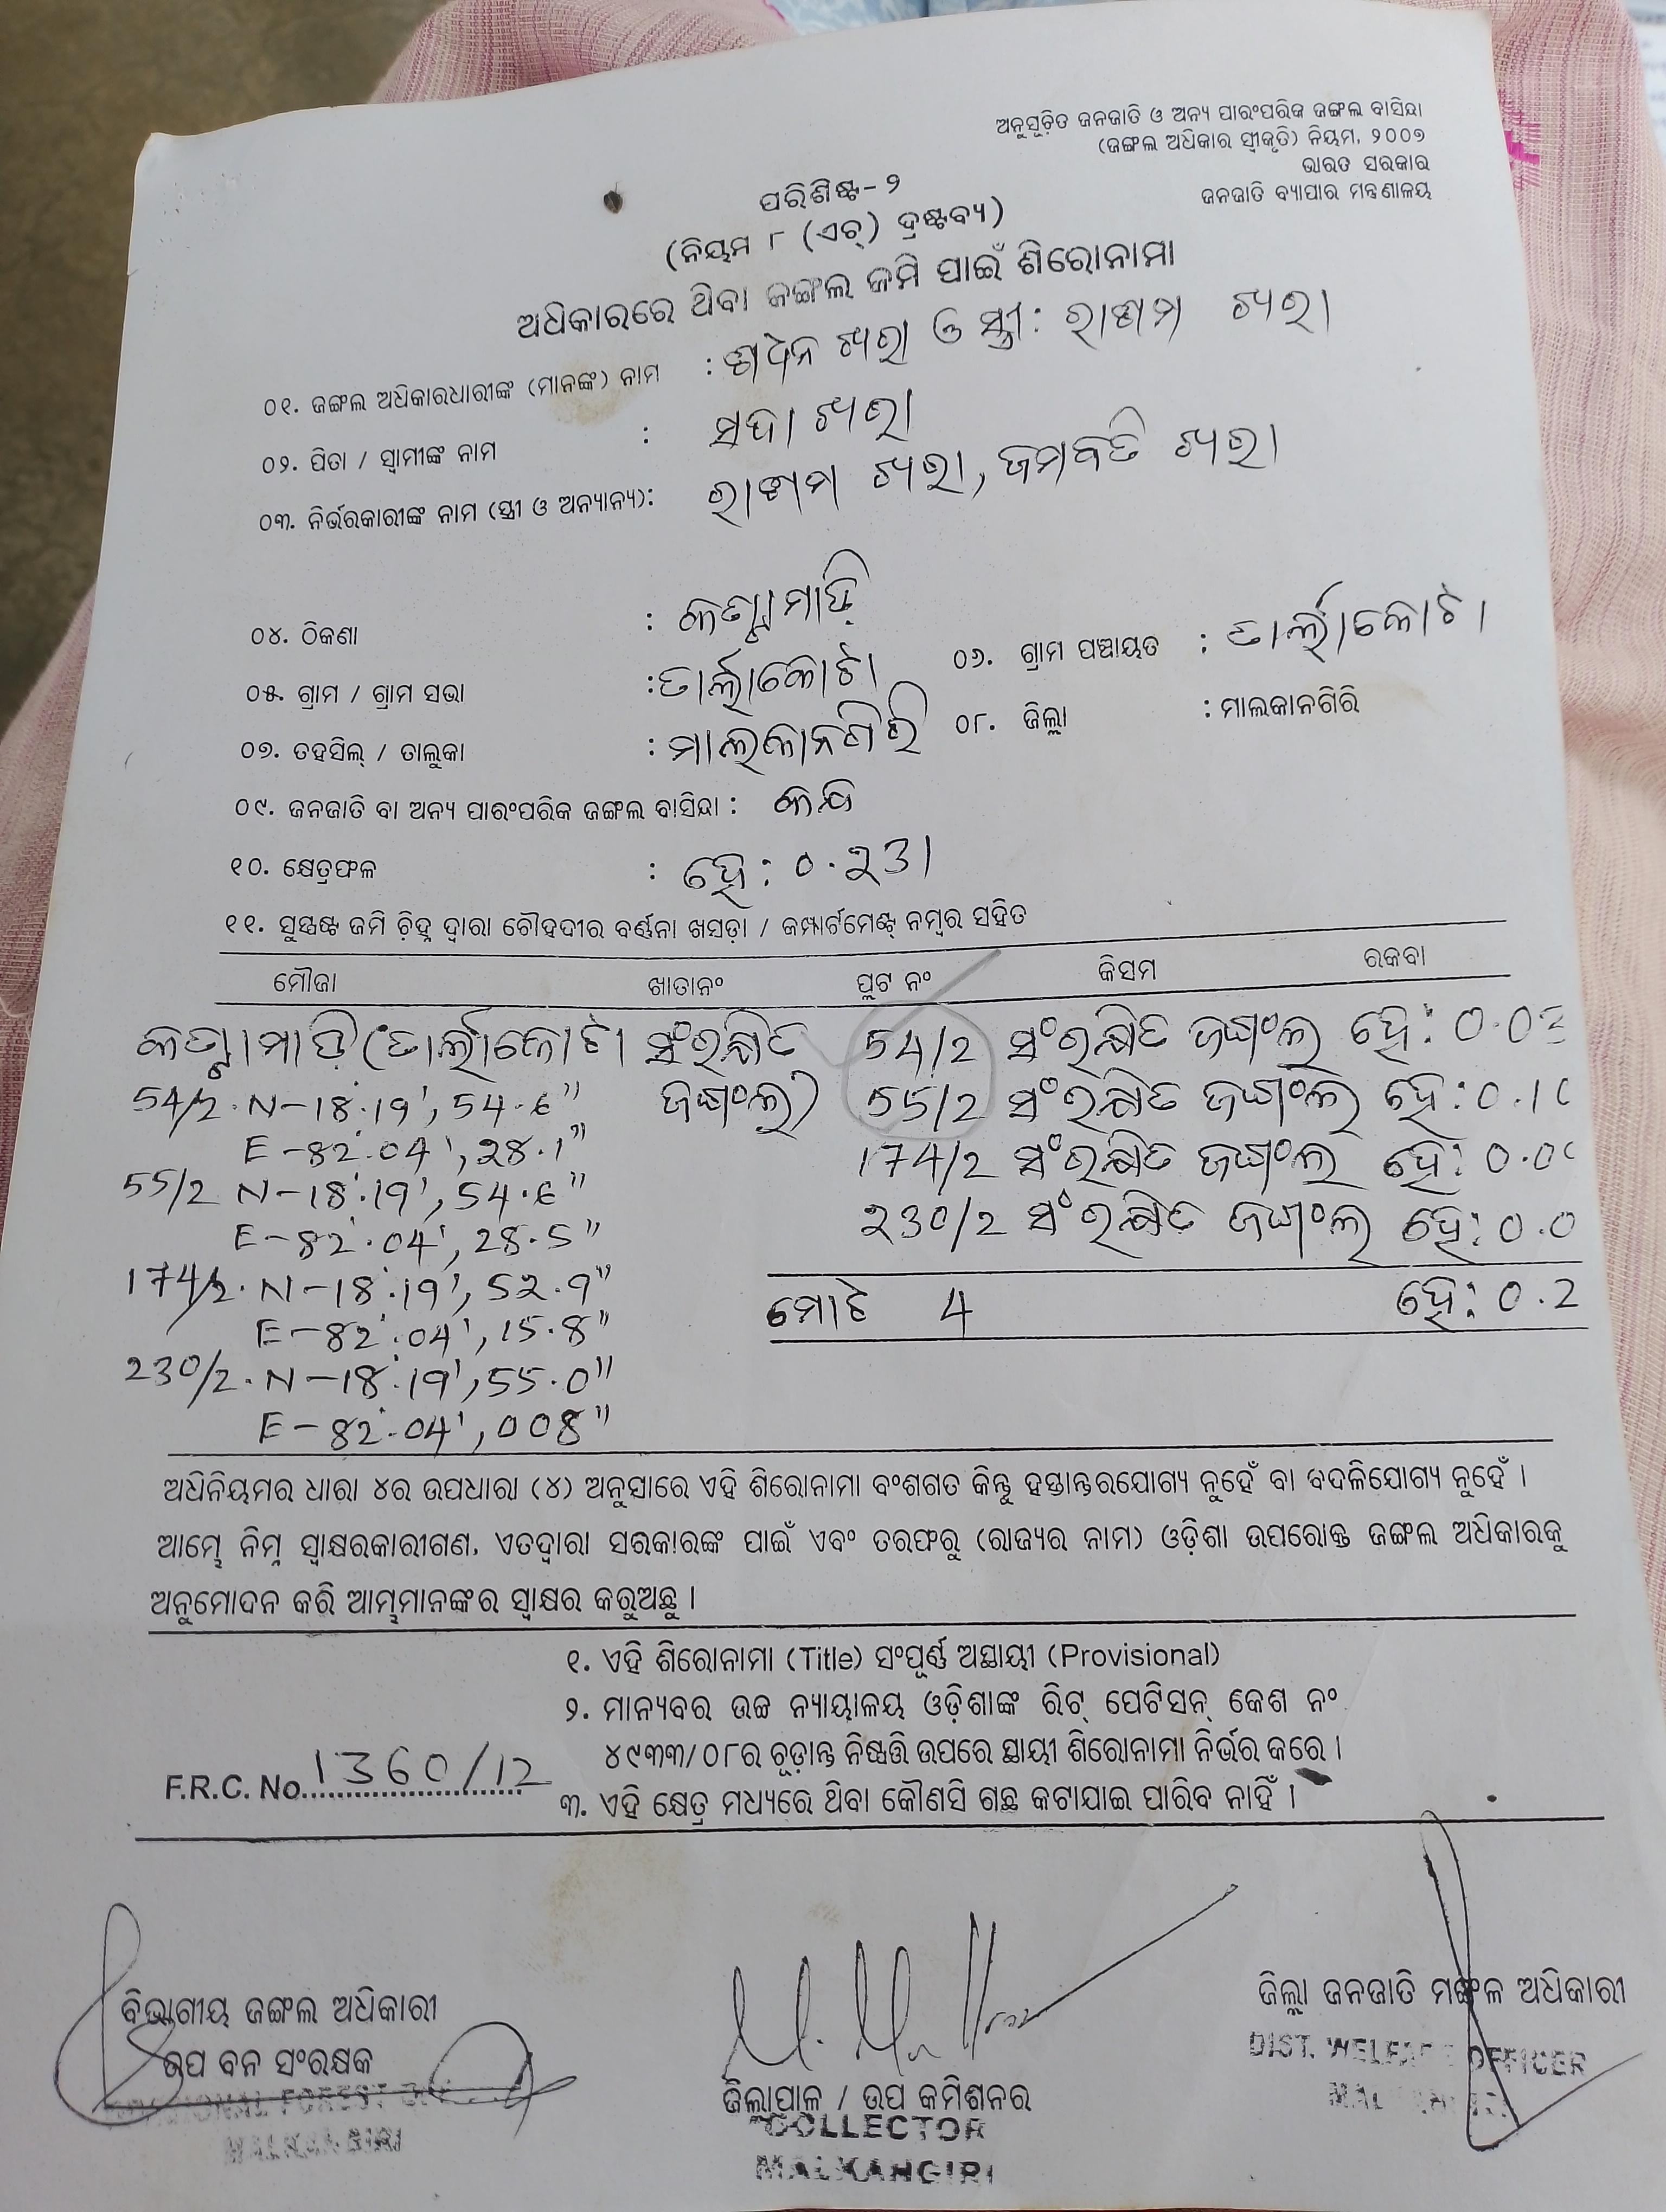 ଅନୁସୂଚିତ ଜନଜାତି ଓ ଅନ୍ୟ ପାରଂପରିକ ଜଙ୍ଗଲ ବାସିନ୍ଦା
(ଜଙ୍ଗଲ ଅଧିକାର ସ୍ୱୀକୃତି) ନିୟମ, ୨୦୦୭
ଭାରତ ସରକାର
ଜନଜାତି ବ୍ୟାପାର ମନ୍ତ୍ରଣାଳୟ
ପରିଶିଷ୍ଟ-୨
(ନିୟମ ୮ (ଏଚ୍) ଦ୍ରଷ୍ଟବ୍ୟ)
ଅଧିକାରରେ ଥିବା ଜଙ୍ଗଲ ଜମି ପାଇଁ ଶିରୋନାମା
୦୧. ଜଙ୍ଗଲ ଅଧିକାରଧାରୀଙ୍କ (ମାନଙ୍କ) ନାମ : ଖରା ଓ ସ୍ତ୍ରୀ: ଖରା
୦୨. ପିତା / ସ୍ୱାମୀଙ୍କ ନାମ : ସଦା ଖରା
୦୩. ନିର୍ଭରକାରୀଙ୍କ ନାମ (ସ୍ତ୍ରୀ ଓ ଅନ୍ୟାନ୍ୟ): ଖରା, ଜମବତି ଖରା
୦୪. ଠିକଣା :
୦୫. ଗ୍ରାମ / ଗ୍ରାମ ସଭା : ତାର୍ଲାକୋଟା ୦୬. ଗ୍ରାମ ପଞ୍ଚାୟତ : ତାର୍ଲାକୋଟା
୦୭. ତହସିଲ୍ / ତାଲୁକା : ମାଲକାନଗିରି ୦୮. ଜିଲ୍ଲା : ମାଲକାନଗିରି
୦୯. ଜନଜାତି ବା ଅନ୍ୟ ପାରଂପରିକ ଜଙ୍ଗଲ ବାସିନ୍ଦା :
୧୦. କ୍ଷେତ୍ରଫଳ : ହେ: ୦.231
୧୧. ସୁସ୍ପଷ୍ଟ ଜମି ଚିହ୍ନ ଦ୍ୱାରା ଚୌହଦୀର ବର୍ଣ୍ଣନା ଖସଡ଼ା / କମ୍ପାର୍ଟମେଣ୍ଟ୍ ନମ୍ବର ସହିତ
ମୌଜା ଖାତାନଂ ପ୍ଲଟ ନଂ କିସମ ରକବା
(ତାର୍ଲାକୋଟା ସଂରକ୍ଷିତ 54/2 ସଂରକ୍ଷିତ ଜଙ୍ଗଂଲ ହେ: 0.03
54/2. N-18°.19', 54.6" ଜଙ୍ଗଂଲ) 55/2 ସଂରକ୍ଷିତ ଜଙ୍ଗଂଲ ହେ: 0.10
E-82°.04', 28.1" 174/2 ସଂରକ୍ଷିତ ଜଙ୍ଗଂଲ ହେ: 0.0
55/2 N-18°.19', 54.6" 230/2 ସଂରକ୍ଷିତ ଜଙ୍ଗଂଲ ହେ: 0.0
E-82°.04', 28.5"
174/2. N-18°.19', 52.9" ମୋଟେ 4 ହେ: 0.2
E-82°.04', 15.8"
230/2. N-18°.19', 55.0"
E-82°.04', 008"
ଅଧିନିୟମର ଧାରା ୪ର ଉପଧାରା (୪) ଅନୁସାରେ ଏହି ଶିରୋନାମା ବଂଶଗତ କିନ୍ତୁ ହସ୍ତାନ୍ତରଯୋଗ୍ୟ ନୁହେଁ ବା ବଦଳିଯୋଗ୍ୟ ନୁହେଁ ।
ଆମ୍ଭେ ନିମ୍ନ ସ୍ୱାକ୍ଷରକାରୀଗଣ, ଏତଦ୍ୱାରା ସରକାରଙ୍କ ପାଇଁ ଏବଂ ତରଫରୁ (ରାଜ୍ୟର ନାମ) ଓଡ଼ିଶା ଉପରୋକ୍ତ ଜଙ୍ଗଲ ଅଧିକାରକୁ
ଅନୁମୋଦନ କରି ଆମ୍ଭମାନଙ୍କର ସ୍ୱାକ୍ଷର କରୁଅଛୁ ।
୧. ଏହି ଶିରୋନାମା (Title) ସଂପୂର୍ଣ୍ଣ ଅସ୍ଥାୟୀ (Provisional)
୨. ମାନ୍ୟବର ଉଚ୍ଚ ନ୍ୟାୟାଳୟ ଓଡ଼ିଶାଙ୍କ ରିଟ୍ ପେଟିସନ୍ କେଶ ନଂ
୪୯୩୩/୦୮ର ଚୂଡ଼ାନ୍ତ ନିଷ୍ପତ୍ତି ଉପରେ ସ୍ଥାୟୀ ଶିରୋନାମା ନିର୍ଭର କରେ ।
F.R.C. No. 1360/12
୩. ଏହି କ୍ଷେତ୍ର ମଧ୍ୟରେ ଥିବା କୌଣସି ଗଛ କଟାଯାଇ ପାରିବ ନାହିଁ ।
ବିଭାଗୀୟ ଜଙ୍ଗଲ ଅଧିକାରୀ
ଉପ ବନ ସଂରକ୍ଷକ
MALKANGIRI
ଜିଲ୍ଲାପାଳ / ଉପ କମିଶନର
COLLECTOR
MALKANGIRI
ଜିଲ୍ଲା ଜନଜାତି ମଙ୍ଗଳ ଅଧିକାରୀ
DIST. WELFARE OFFICER
MALKANGIRI